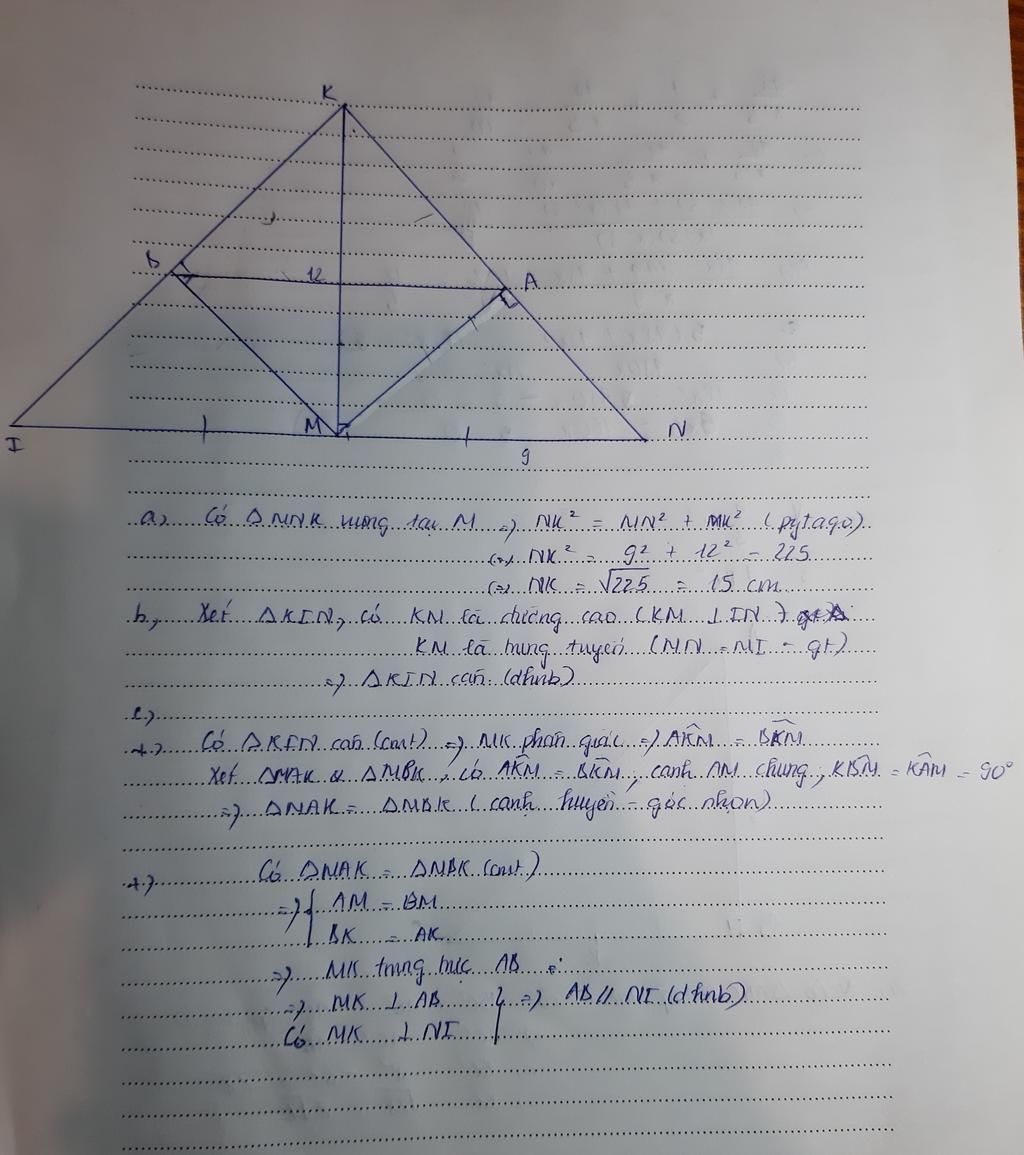 K
B
12
A
I
M
N
9
a, Có ΔMNK vuông tại M => NK² = MN² + MK² (pytago)
<=> NK² = 9² + 12² = 225
<=> NK = √225 = 15 cm
b, Xét ΔKIN, có KM là đường cao (KM ⊥ IN)
KM là trung tuyến (MN = MI - gt)
=> ΔKIN cân (dhnb)
c,
+, Có ΔKIN cân (cmt) => MK phân giác => AK̂M = BK̂M
Xét ΔMAK & ΔMBK, có AK̂M = BK̂M, cạnh AM chung, KB̂M = KÂM = 90°
=> ΔMAK = ΔMBK (cạnh huyền - góc nhọn)
+, Có ΔMAK = ΔMBK (cmt)
=> { AM = BM
BK = AK
=> MK trung trực AB
=> MK ⊥ AB } => AB // NI (dhnb)
Có MK ⊥ NI